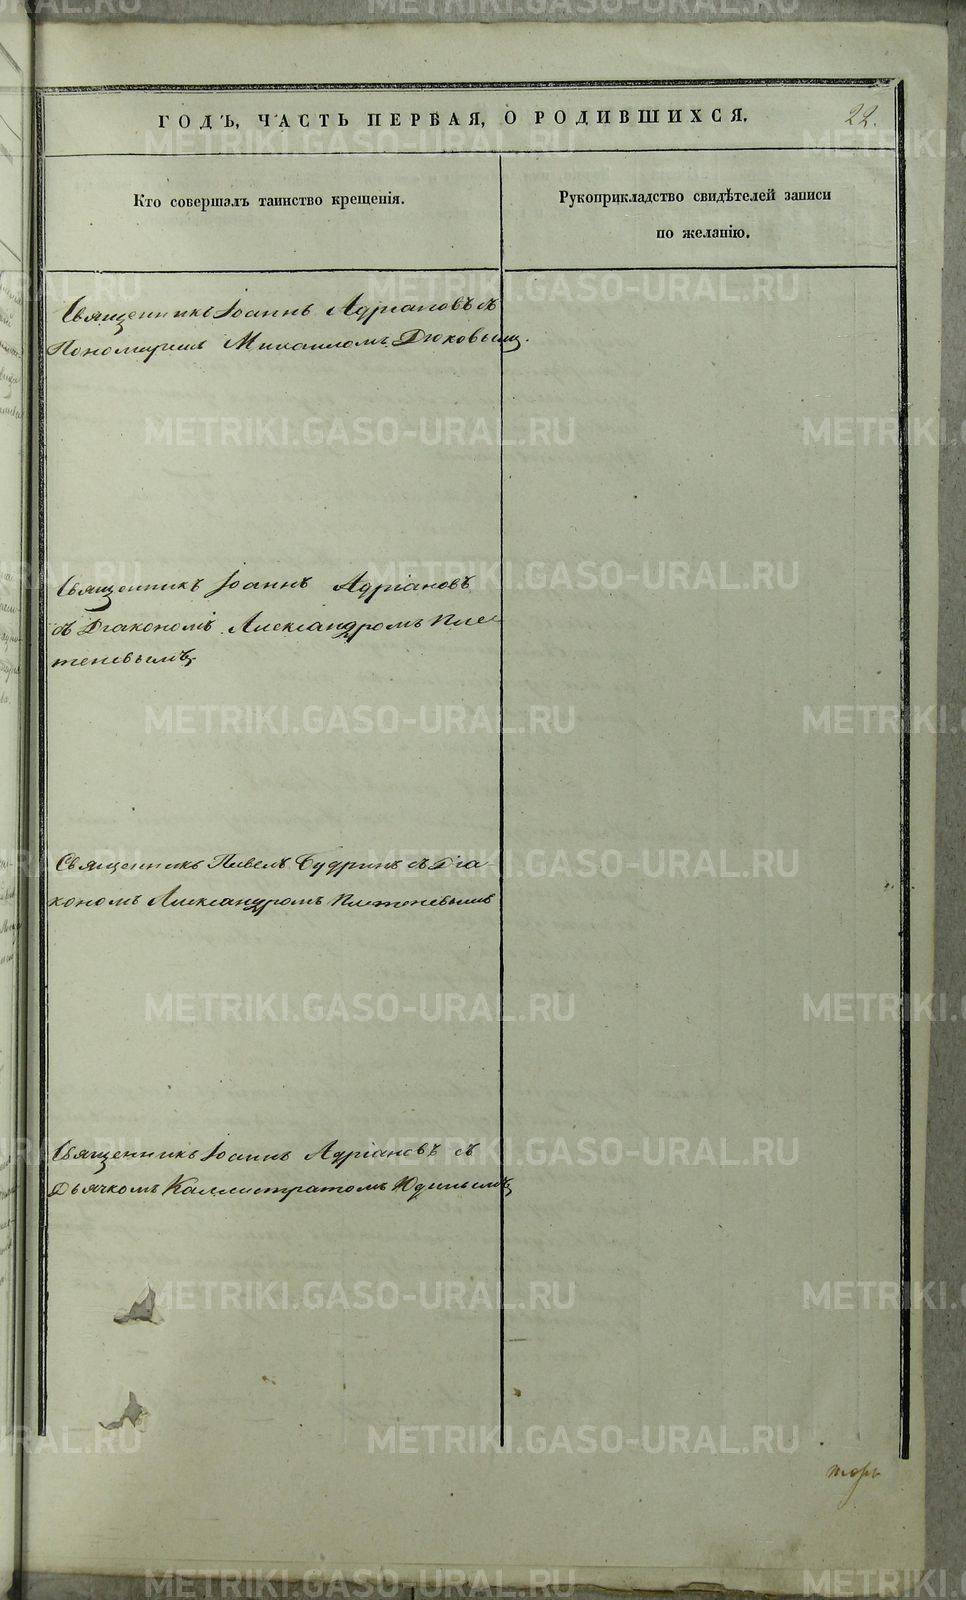 ГОДЪ, ЧАСТЬ ПЕРВАЯ, О РОДИВШИХСЯ.
22.
Кто совершалъ таинство крещенія.
Рукоприкладство свидѣтелей записи
по желанію.
Священникъ Іоаннъ Адріановъ съ
Пономаремъ Михаиломъ Дюковымъ.
Священникъ Іоаннъ Адріановъ
съ Діакономъ Александромъ Пле-
теневымъ.
Священникъ Павелъ Сударинъ съ Діа-
кономъ Александромъ Плетеневымъ
Священникъ Іоаннъ Адріановъ съ
Дьячкомъ Каллистратомъ Юдинымъ
METRIKI.GASO-URAL.RU